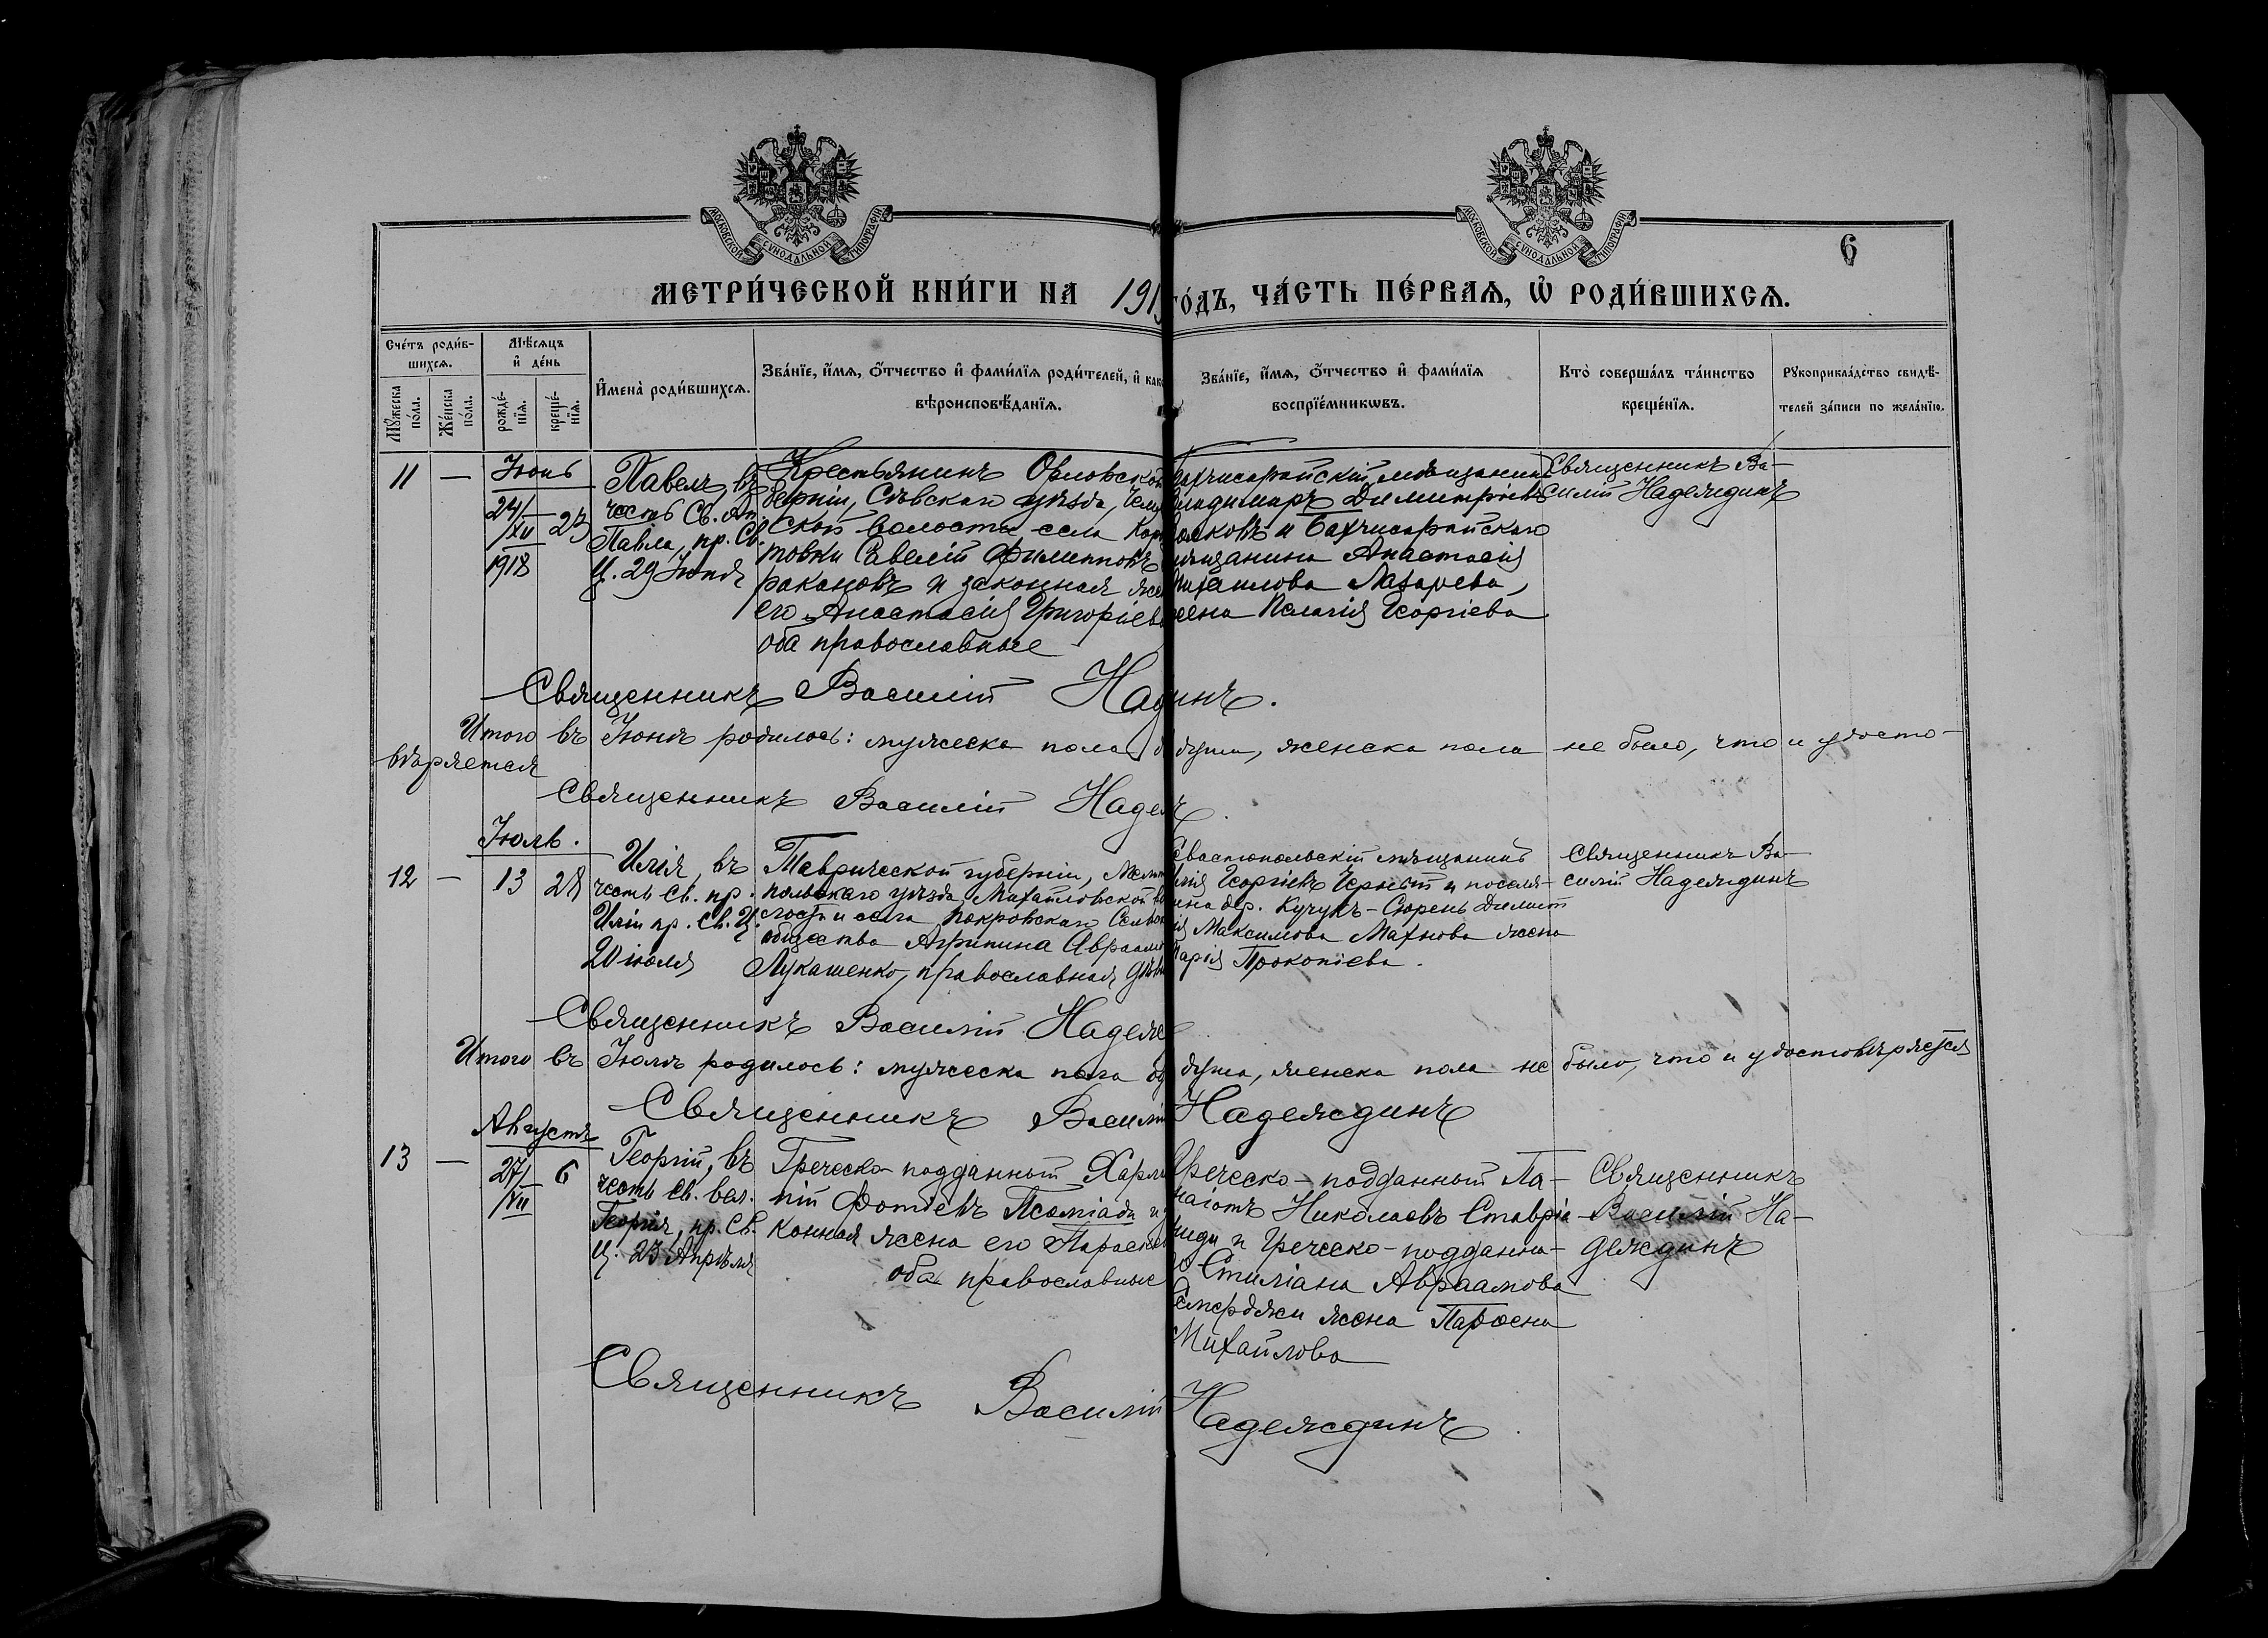 МОСКОВСКОЙ СѴНОДАЛЬНОЙ ТИПОГРАФІИ
МОСКОВСКОЙ СѴНОДАЛЬНОЙ ТИПОГРАФІИ
6
МЕТРИ́ЧЕСКОЙ КНИ́ГИ НА 191
го́дъ, ЧА́СТЬ ПЕ́РВАѦ, Ѡ҆ РОДИ́ВШИХСѦ.
Сче́тъ роди́в-
шихсѧ.
Мꙋ́жеска по́ла.
Же́нска по́ла.
Мѣ́сѧцъ
и҆ де́нь
рожде́-
нїѧ.
креще́-
нїѧ.
И҆мена̀ роди́вшихсѧ.
Зва́нїе, и҆́мѧ, ѻ҆́тчество и҆ фами́лїѧ роди́телей, и҆ как
вѣроисповѣ́данїѧ.
Зва́нїе, и҆́мѧ, ѻ҆́тчество и҆ фами́лїѧ
воспрїе́мникѡвъ.
Кто̀ соверша́лъ та́инство
креще́нїѧ.
Рꙋкоприкла́дство свидѣ́-
телей за́писи по жела́нїю.
11 — Іюнь
24/XII 1918 23
Павелъ, въ
честь Св. Ап.
Павла, пр. Св.
Ц. 29 Іюня
Крестьянинъ Орловской
берніи, Сѣвскаго уѣзда, Чем
ской волости села Кор
товки Савелій Филипповъ
ракановъ и законная жен
его Анастасія Григоріева
оба православные
Бахчисарайскій мѣщанинъ
Владимиръ Димитріевъ
Волковъ и Бахчисарайскаго
мѣщанина Анастасія
Михаилова Лазарева,
жена Пелагія Георгіева
Священникъ Ва-
силій Надеждинъ
Священникъ Василій Над инъ.
Итого въ Іюнѣ родилось: мужеска пола о душа, женска пола не было, что и удосто-
вѣряется
Священникъ Василій Надеж ъ.
Іюль.
12 — 13 28
Илія, въ
честь Св. пр.
Иліи пр. Св. Ц.
20 іюля
Таврической губерніи, Мелит
польскаго уѣзда, Михайловской во
лости и села Покровскаго Сельск
общества Агрипина Авраам
Лукашенко, православная дѣви
Севастопольскій мѣщанинъ
Илія Георгіевъ Черный и поселя-
нина дер. Кучукъ-Сюрень Димит
ія Максимова Махнова жена
Марія Прокопіева.
Священникъ Ва-
силій Надеждинъ
Священникъ Василій Надеж
Итого въ Іюлѣ родилось: мужеска пола од душа, женска пола не было, что и удостовѣряется
Священникъ Василій Надеждинъ
Августъ
13 — 27/VII 6
Георгій, въ
честь Св. вел.
Георгія, пр. Св.
Ц. 23 Апрѣля
Греческо-подданный Харлам
пій Фотіевъ Псоміади и за
конная жена его Параскев
оба православные
Греческо-подданный Па-
наіотъ Николаевъ Ставріа-
ниди и Греческо-поддан-
го Стиліана Авраамова
жена
Михайлова
Священникъ
Василій На-
деждинъ
Священникъ Василій Надеждинъ